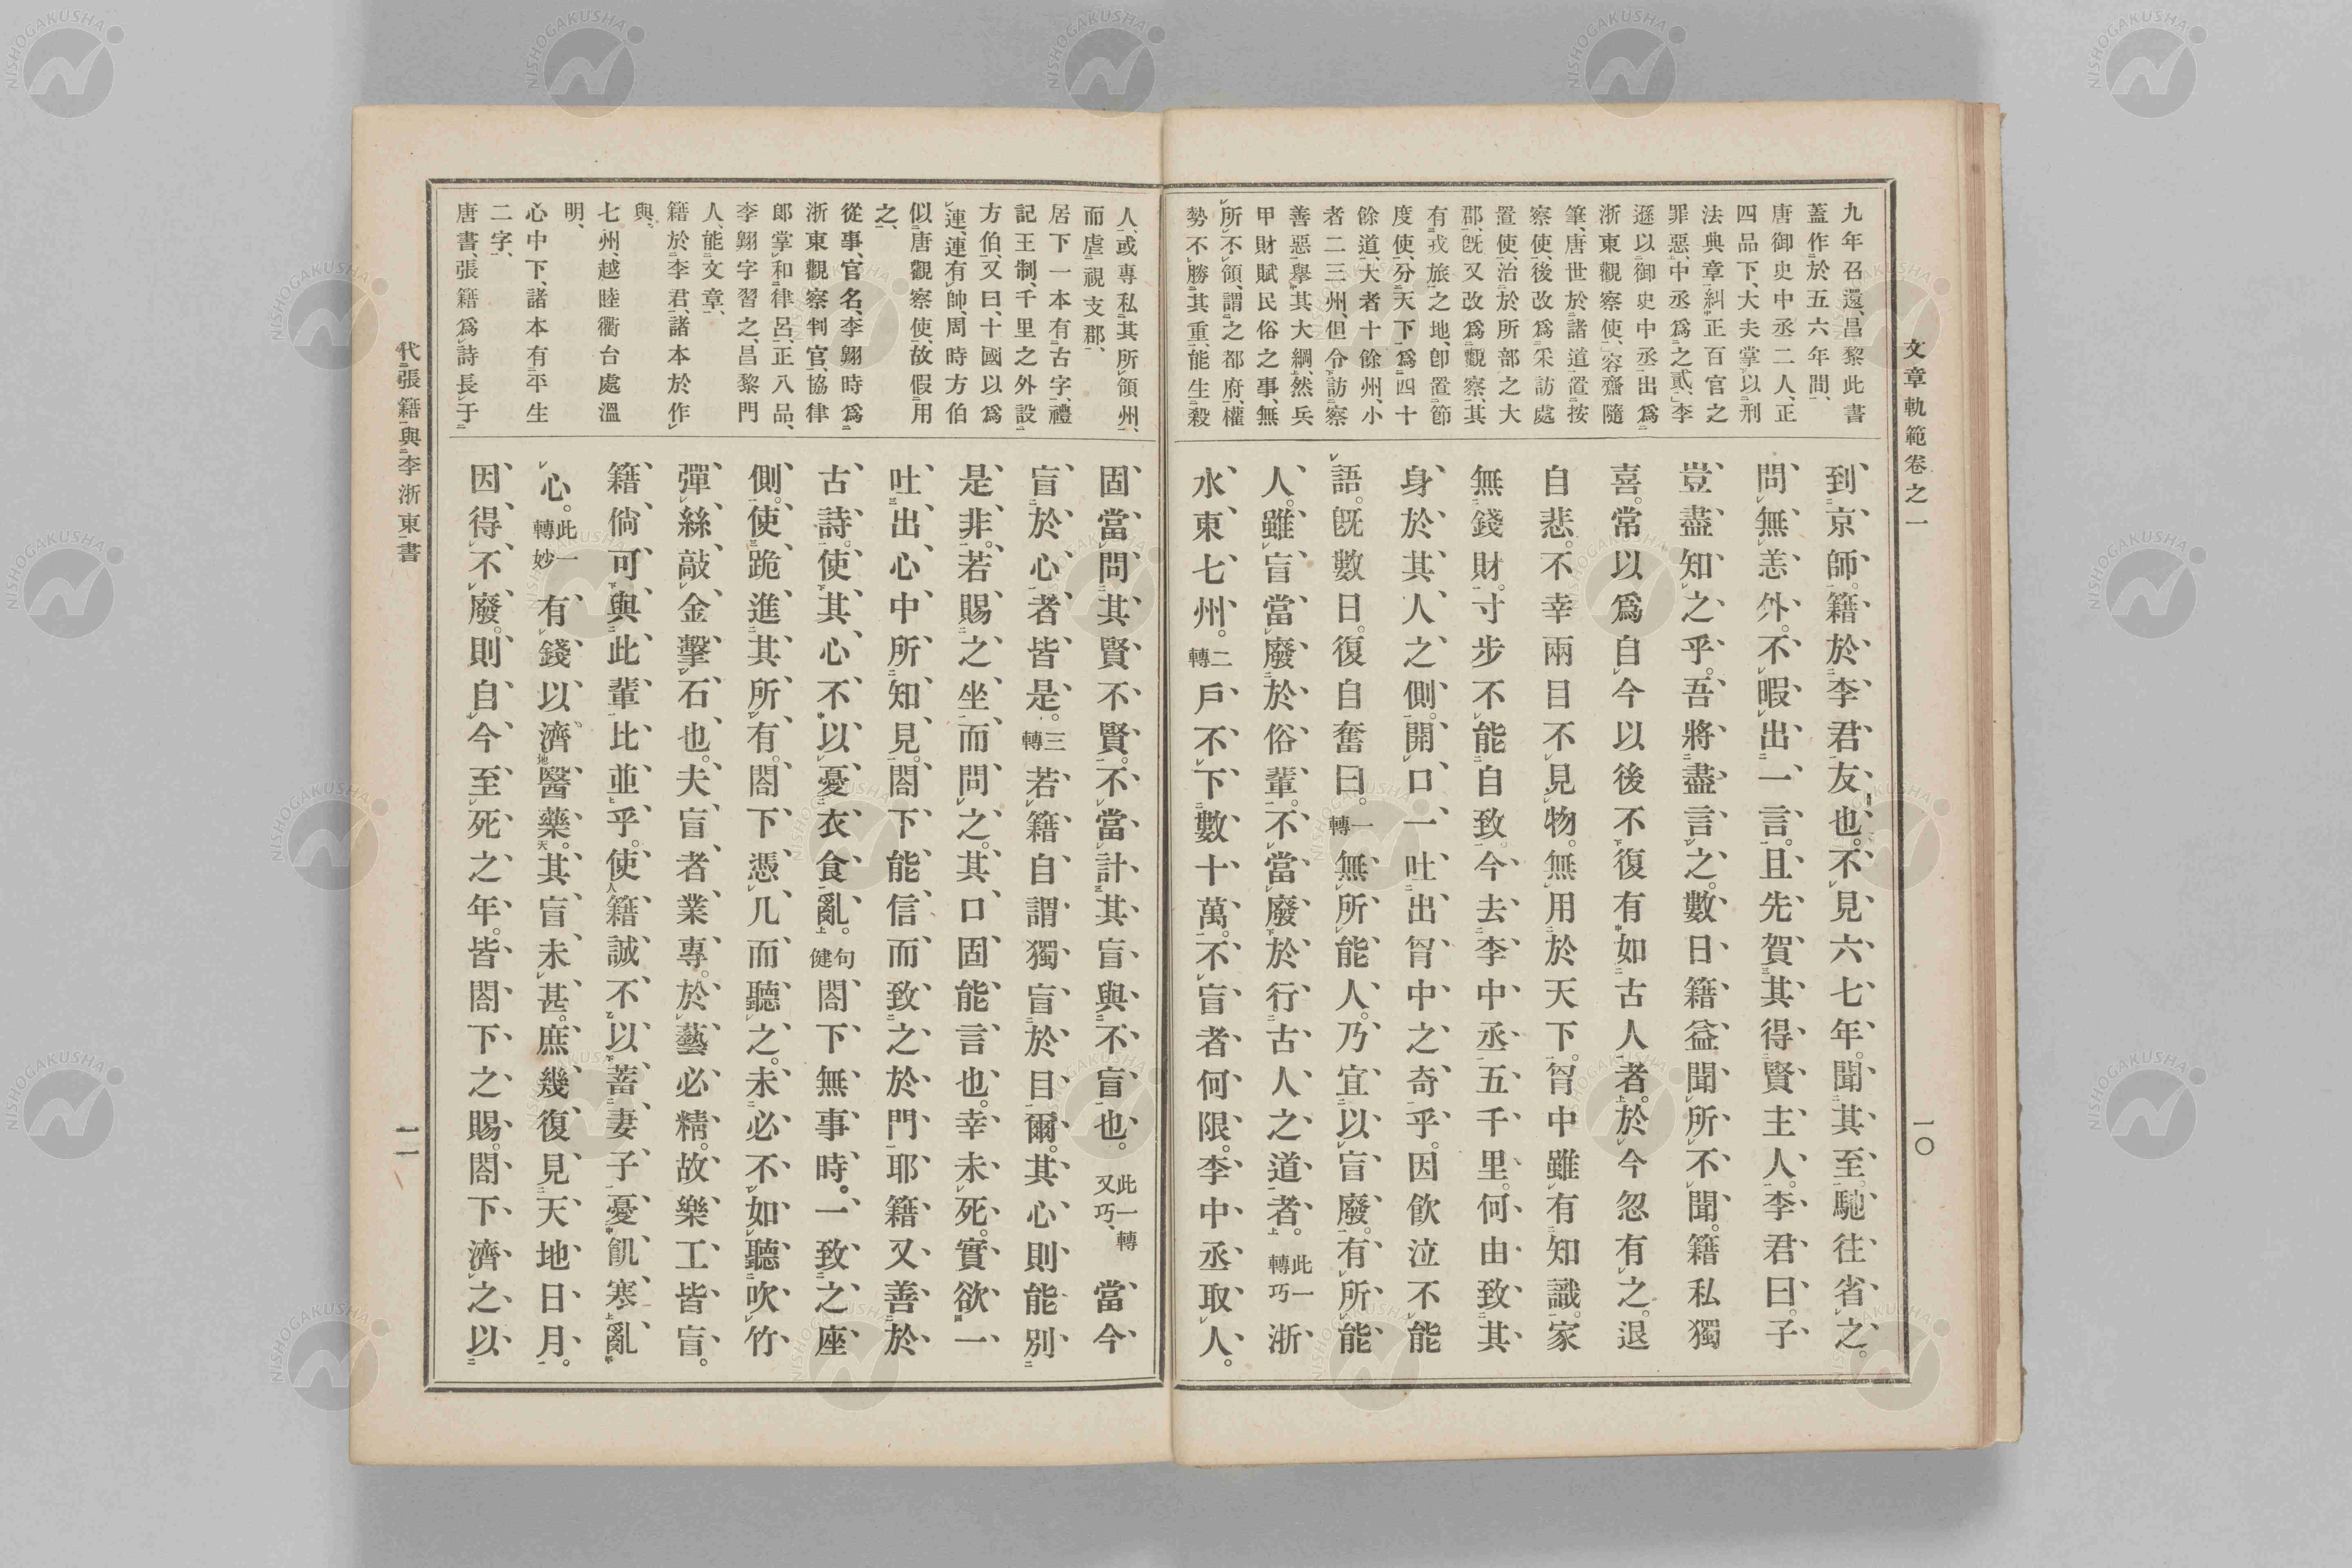 文章軌範卷之一
一〇
九年召還、昌黎此書
蓋作於五六年間、
唐御史中丞二人、正
四品下、大夫掌以刑
法典章、糾正百官之
罪惡、中丞爲之貳、李
遜以御史中丞出爲
浙東觀察使、容齋隨
筆、唐世於諸道置按
察使、後改爲采訪處
置使、治於所部之大
郡、既又改爲觀察、其
有戎旅之地、卽置節
度使、分天下爲四十
餘道、大者十餘州、小
者二三州、但令訪察
善惡、擧其大綱、然兵
甲財賦民俗之事、無
所不領、謂之都府、權
勢不勝其重、能生殺
到京師。籍於李君友也。不見六七年。聞其至。馳往省之。
問無恙外。不暇出一言。且先賀其得賢主人。李君曰。子
豈盡知之乎。吾將盡言之。數日籍益聞所不聞。籍私獨
喜。常以爲自今以後不復有如古人者。於今忽有之。退
自悲。不幸兩目不見物。無用於天下。胷中雖有知識。家
無錢財。寸步不能自致。今去李中丞五千里。何由致其
身於其人之側。開口一吐出胷中之奇乎。因飮泣不能
語。既數日。復自奮曰。一轉無所能人。乃宜以盲廢。有所能
人。雖盲當廢於俗輩。不當廢於行古人之道者。此一轉巧浙
水東七州。二轉戶不下數十萬。不盲者何限。李中丞取人。
人、或專私其所領州、
而虐視支郡、
居下一本有古字、禮
記王制、千里之外設
方伯、又曰、十國以爲
連、連有帥、周時方伯
似唐觀察使、故假用
之、
從事、官名、李翺時爲
浙東觀察判官、協律
郎掌和律呂、正八品、
李翺字習之、昌黎門
人、能文章、
籍於李君、諸本於作
與、
七州、越睦衢台處溫
明、
心中下、諸本有平生
二字、
唐書、張籍爲詩長于
固當問其賢不賢。不當計其盲與不盲也。此一轉又巧、當今
盲於心者皆是。三轉若籍自謂獨盲於目爾。其心則能別
是非。若賜之坐而問之。其口固能言也。幸未死。實欲一
吐出心中所知見。閤下能信而致之於門耶籍又善於
古詩。使其心不以憂衣食亂。句健閤下無事時。一致之座
側。使跪進其所有。閤下憑几而聽之。未必不如聽吹竹
彈絲敲金擊石也。夫盲者業專。於藝必精。故樂工皆盲。
籍倘可與此輩比並乎。使籍誠不以蓄妻子憂飢寒亂
心。此一轉妙有錢以濟醫藥。其盲未甚。庶幾復見天地日月。
因得不廢。則自今至死之年。皆閤下之賜。閤下濟之以
代張籍與李浙東書
一一